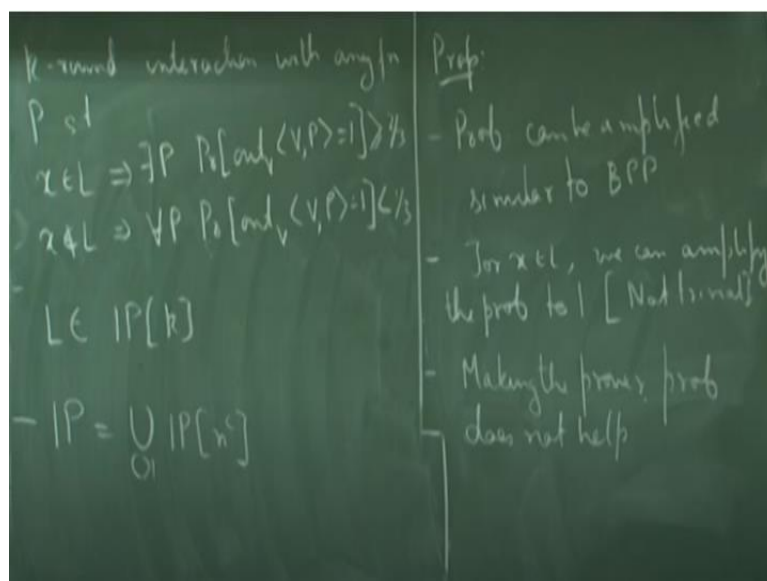 k-round interaction with any fn
P st
x ∈ L ⇒ ∃P Pr[out_v <V,P> = 1] ≥ 2/3
x ∉ L ⇒ ∀P Pr[out_v <V,P> = 1] < 1/3
L ∈ IP[k]
- IP = ∪ IP[n^c]
Prop:
- Prob can be amplified
similar to BPP
- For x ∈ L, we can amplify
the prob to 1 [Not trivial]
- Making the prover prob
does not help
-